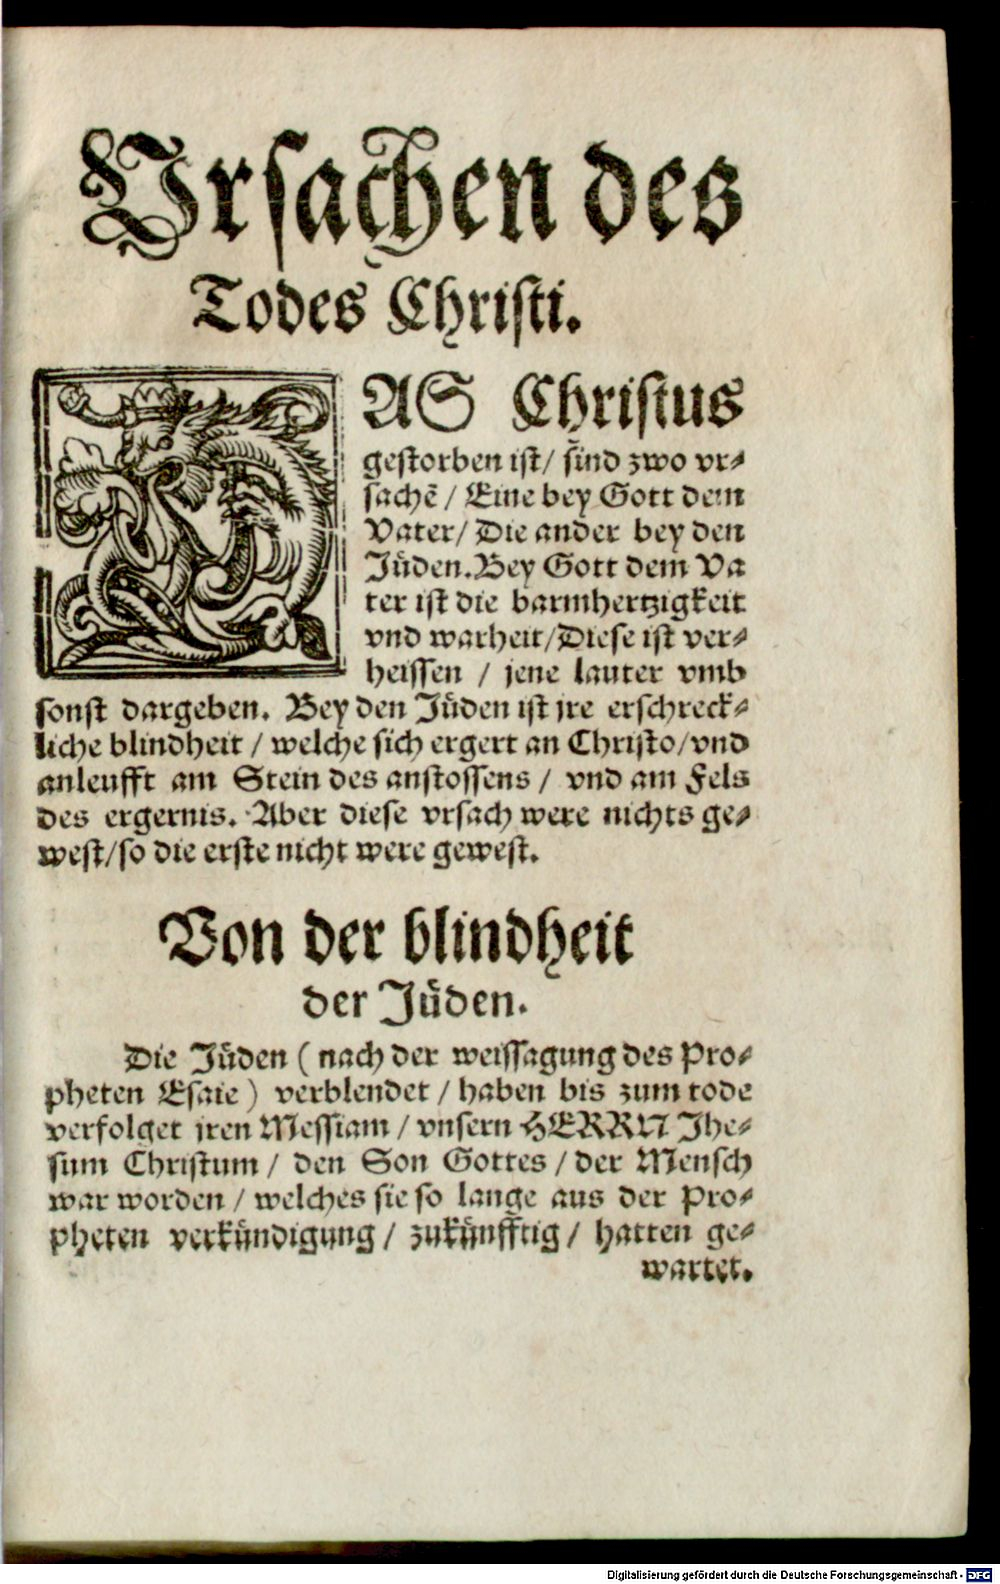 Vrsachen des
Todes Christi.
DAS Christus
gestorben ist/ sind zwo vr⸗
sachē / Eine bey Gott dem
Vater/ Die ander bey den
Jüden. Bey Gott dem Va
ter ist die barmhertzigkeit
vnd warheit/ Diese ist ver⸗
heissen / jene lauter vmb
sonst dargeben. Bey den Jüden ist jre erschreck⸗
liche blindheit / welche sich ergert an Christo/ vnd
anleufft am Stein des anstossens / vnd am Fels
des ergernis. Aber diese vrsach were nichts ge⸗
west/ so die erste nicht were gewest.
Von der blindheit
der Jüden.
Die Jüden ( nach der weissagung des Pro⸗
pheten Esaie ) verblendet / haben bis zum tode
verfolget jren Messiam / vnsern HERRN Jhe⸗
sum Christum / den Son Gottes / der Mensch
war worden / welches sie so lange aus der Pro⸗
pheten verkündigung / zukünfftig / hatten ge⸗
wartet.
Digitalisierung gefördert durch die Deutsche Forschungsgemeinschaft - DFG